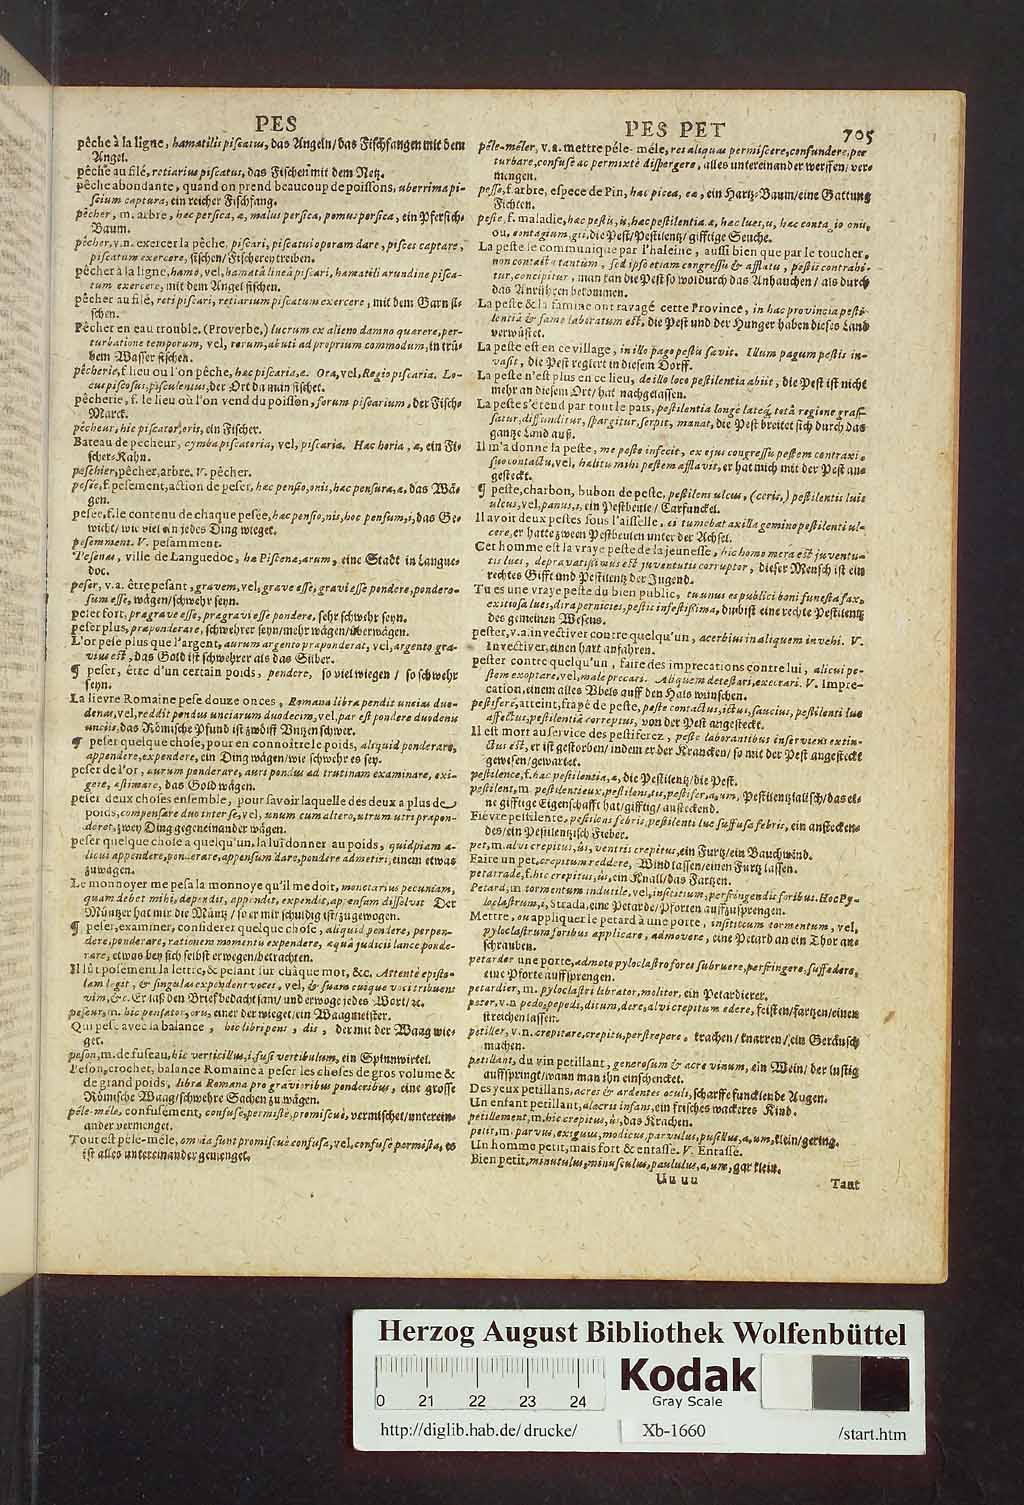 PES
pêche à la ligne, hamatilis piscatus, das Angeln/das Fischfangen mit dem
Angel.
pêche au filé, retiarius piscatus, das Fischen mit dem Netz.
pêche abondante, quand on prend beaucoup de poissons, uberrima pi-
scium captura, ein reicher Fischfang.
pêcher, m. arbre, hæc persica, æ, malus persica, pomus persica, ein Pfersich-
Baum.
pêcher, v.n. exercer la pêche, piscari, piscatui operam dare, pisces captare,
piscatum exercere, fischen/Fischerey treiben.
pêcher à la ligne, hamo, vel, hamatâ lineâ piscari, hamatili arundine pisca-
tum exercere, mit dem Angel fischen.
pêcher au filé, reti piscari, retiarium piscatum exercere, mit dem Garn fi-
schen.
Pêcher en eau trouble. (Proverbe,) lucrum ex alieno damno quærere, per-
turbatione temporum, vel, rerum, abuti ad proprium commodum, in trü-
bem Wasser fischen.
pêcherie, f. lieu ou l'on pêche, hæc piscaria, æ. Ora, vel, Regio piscaria. Lo-
cus piscosus, pisculentus, der Ort da man fischet.
pêcherie, f. le lieu où l'on vend du poisson, forum piscarium, der Fisch-
Marck.
pêcheur, hic piscator, oris, ein Fischer.
Bateau de pêcheur, cymba piscatoria, vel, piscaria. Hæc horia, æ, ein Fi-
scher-Kahn.
peschier, pêcher, arbre. V. pêcher.
pesée, f. pesement, action de peser, hæc pensio, onis, hæc pensura, æ, das Wä-
gen.
pesée, f. le contenu de chaque pesée, hæc pensio, nis, hoc pensum, i, das Ge-
wicht/wie viel ein jedes Ding wieget.
pesemment. V. pesamment.
Pesenas, ville de Languedoc, hæ Piscenæ, arum, eine Stadt in Langue-
doc.
peser, v.a. être pesant, gravem, vel, grave esse, gravi esse pondere, pondero-
sum esse, wägen/schwehr seyn.
peser fort, prægrave esse, prægravi esse pondere, sehr schwehr seyn.
peser plus, præponderare, schwehrer seyn/mehr wägen/überwägen.
L'or pese plus que l'argent, aurum argento præponderat, vel, argento gra-
vius est, das Gold ist schwehrer als das Silber.
¶ peser, être d'un certain poids, pendere, so viel wiegen / so schwehr
seyn.
La lievre Romaine pese douze onces, Romana libra pendit uncias duo-
denas, vel, reddit pondus unciarum duodecim, vel, par est pondere duodenis
unciis, das Römische Pfund ist zwölff Untzen schwer.
¶ peser quelque chose, pour en connoître le poids, aliquid ponderare,
appendere, expendere, ein Ding wägen/wie schwehr es sey.
peser de l'or, aurum ponderare, auri pondus ad trutinam examinare, exi-
gere, æstimare, das Gold wägen.
peser deux choses ensemble, pour savoir laquelle des deux a plus de
poids, compensare duo inter se, vel, unum cum altero, utrum utri præpon-
deret, zwey Ding gegeneinander wägen.
peser quelque chose a quelqu'un, la lui donner au poids, quidpiam a-
licui appendere, ponderare, appensum dare, pondere admetiri, einem etwas
zuwägen.
Le monnoyer me pesa la monnoye qu'il me doit, monetarius pecuniam,
quam debet mihi, dependit, appendit, expendit, appensam dissolvit Der
Müntzer hat mir die Müntz/so er mir schuldig ist/zugewogen.
¶ peser, examiner, considerer quelque chose, aliquid pendere, perpen-
dere, ponderare, rationem momentis expendere, æquâ judicii lance ponde-
rare, etwas bey sich selbst erwegen/betrachten.
Il lût posément la lettre, & pesant sur châque mot, &c. Attentè episto-
lam legit, & singulas expendens voces, vel, & suam cuique voci tribuens
vim, &c. Er laß den Brief bedachtsam/und erwoge jedes Wort/ec.
peseur, m. hic pensator, oris, einer der wieget/ein Waagmeister.
Qui pese avec la balance, hic libripens, dis, der mit der Waag wie-
get.
peson, m. de fuseau, hic verticillus, i, fusi vertibulum, ein Spinnwirtel.
Peson, crochet, balance Romaine à peser les choses de gros volume &
de grand poids, libra Romana pro gravioribus ponderibus, eine grosse
Römische Waag/schwehre Sachen zu wägen.
péle-méle, confusément, confusè, permistè, promiscuè, vermischet/unterein-
ander vermenget.
Tout est péle-méle, omnia sunt promiscuè confusa, vel, confusè permista, es
ist alles untereinander gemenget.
PES PET 705
péle-méler, v.a. mettre péle-méle, res aliquas permiscere, confundere, per
turbare, confusè ac permixtè dispergere, alles untereinander werffen/ver-
mengen.
pesse, f. arbre, espece de Pin, hæc picea, eæ, ein Hartz-Baum/eine Gattung
Fichten.
peste, f. maladie, hæc pestis, is, hæc pestilentia, æ, hæc lues, is, hæc contagio onis,
ou, contagium, gii, die Pest/Pestilentz/gifftige Seuche.
La peste se communique par l'haleine, aussi bien que par le toucher,
non contactu tantùm, sed ipso etiam congressu & afflatu, pestis contrahi-
tur, concipitur, man kan die Pest so wol durch das Anhauchen/als durch
das Anrühren bekommen.
La peste & la famine ont ravagé cette Province, in hac provincia pesti-
lentiâ & fame laboratum est, die Pest und der Hunger haben dieses Land
verwüstet.
La peste est en ce village, in illo pago pestis sævit. Illum pagum pestis in-
vasit, die Pest regiert in diesem Dorff.
La peste n'est plus en ce lieu, de illo loco pestilentia abiit, die Pest ist nicht
mehr an diesem Ort/hat nachgelassen.
La peste s'étend par tout le païs, pestilentia longè latéq, totâ regione gras-
satur, diffunditur, spargitur, serpit, manat, die Pest breitet sich durch das
gantze Land auß.
Il m'a donné la peste, me peste infecit, ex ejus congressu pestem contraxi,
suo contactu, vel, halitu mihi pestem afflavit, er hat mich mit der Pest an-
gesteckt.
¶ peste, charbon, bubon de peste, pestilens ulcus, (ceris,) pestilentis luis
ulcus, vel, panus, i, ein Pestbeule/Carfunckel.
Il avoit deux pestes sous l'aisselle, ei tumebat axilla gemino pestilenti ul-
cere, er hatte zween Pestbeulen unter der Achsel.
Cet homme est la vraye peste de la jeunesse, hic homo mera est juventu-
tis lues, depravatissimus est juventutis corruptor, dieser Mensch ist ein
rechtes Gifft und Pestilentz der Jugend.
Tu es une vraye peste du bien public, tu unus es publici boni funesta fax,
exitiosa lues, dira pernicies, pestis infestissima, du bist eine rechte Pestilentz
des gemeinen Wesens.
pester, v.a. invectiver contre quelqu'un, acerbius in aliquem invehi. V.
Invectiver, einen hart anfahren.
pester contre quelqu'un, faire des imprecations contre lui, alicui pe-
stem exoptare, vel, male precari. Aliquem detestari, execrari. V. Impre-
cation, einem alles Ubels auff den Hals wünschen.
pestiferé, atteint, frapé de peste, peste contactus, ictus, saucius, pestilenti lue
affectus, pestilentiâ correptus, von der Pest angesteckt.
Il est mort au service des pestiferez, peste laborantibus inserviens extin-
ctus est, er ist gestorben/indem er der Krancken/so mit der Pest angesteckt
gewesen/gewartet.
pestilence, f. hæc pestilentia, æ, die Pestilentz/die Pest.
pestilent, m. pestilentieux, pestilens, tis, pestifer, a, um, Pestilentzialisch/das ei-
ne gifftige Eigenschafft hat/gifftig/ansteckend.
Fiévre pestilente, pestilens febris, pestilenti lue suffusa febris, ein anstecken-
des/ein Pestilentzisch Fieber.
pet, m. alvi crepitus, ûs, ventris crepitus, ein Furtz/ein Bauchwind.
Faire un pet, crepitum reddere, Wind lassen/einen Furtz lassen.
petarade, f. hic crepitus, ûs, ein Knall/das Fartzen.
Petard, m tormentum inductile, vel, insititium, perfringendis foribus. Hoc Py-
loclastrum, i, Strada, eine Petarde/Pforten auffzusprengen.
Mettre, ou appliquer le petard à une porte, insititium tormentum, vel,
pyloclastrum foribus applicare, admovere, eine Petard an ein Thor an-
schrauben.
petarder une porte, admoto pyloclastro fores subruere, perfringere, suffodere,
eine Pforte auffsprengen.
petardier, m. pyloclastri librator, molitor, ein Petardierer.
peter, v.n pedo, pepedi, ditum, dere, alvi crepitum edere, feisten/fartzen/einen
streichen lassen.
petiller, v.n. crepitare, crepitu, perstrepere, krachen/knarren/ein Geräusch
machen.
petillant, du vin petillant, generosum & acre vinum, ein Wein/der lustig
auffspringt/wann man ihn einschencket.
Des yeux petillans, acres & ardentes oculi, scharffe funcklende Augen.
Un enfant petillant, alacris infans, ein frisches wackeres Kind.
petillement, m. hic crepitus, ûs, das Krachen.
petit, m. parvus, exiguus, modicus, parvulus, pusillus, a, um, klein/gering.
Un homme petit, mais fort & entassé. V. Entassé.
Bien petit, minutulus, minusculus, paululus, a, um, gar klein.
Uu uu
Tant
Herzog August Bibliothek Wolfenbüttel
0 21 22 23 24
Kodak
Gray Scale
http://diglib.hab.de/drucke/ Xb-1660 /start.htm